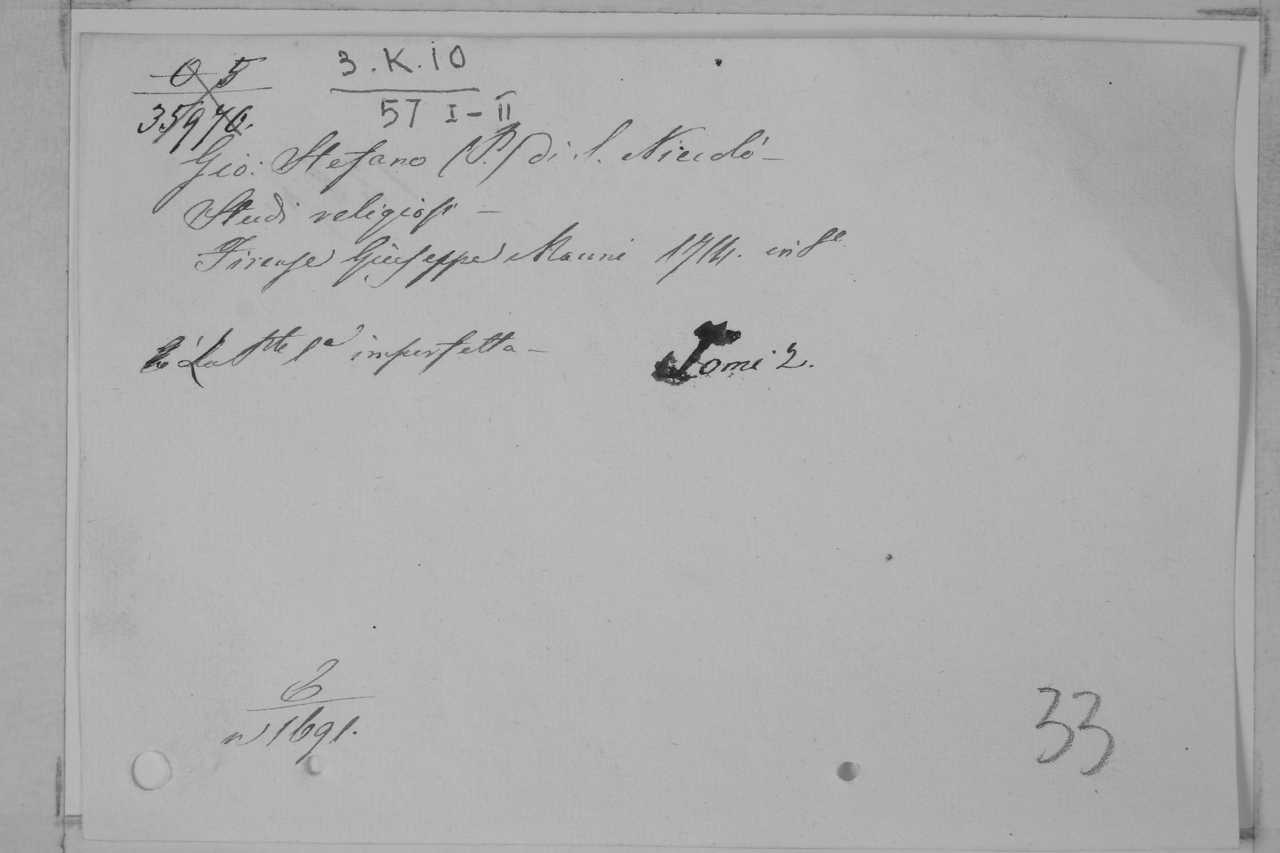 O 5
35970.
3.K.10
57 I-II
Gio: Stefano (P.) di S. Niccoló-
Studi religiosi -
Firenze Giuseppe Manni 1714. in 8º
La Pte 1ª imperfetta -
Tomi 2.
6
n 1691.
33